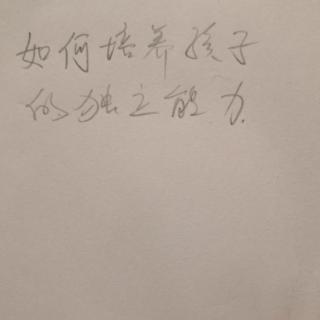 如何培养孩子
的独立能力